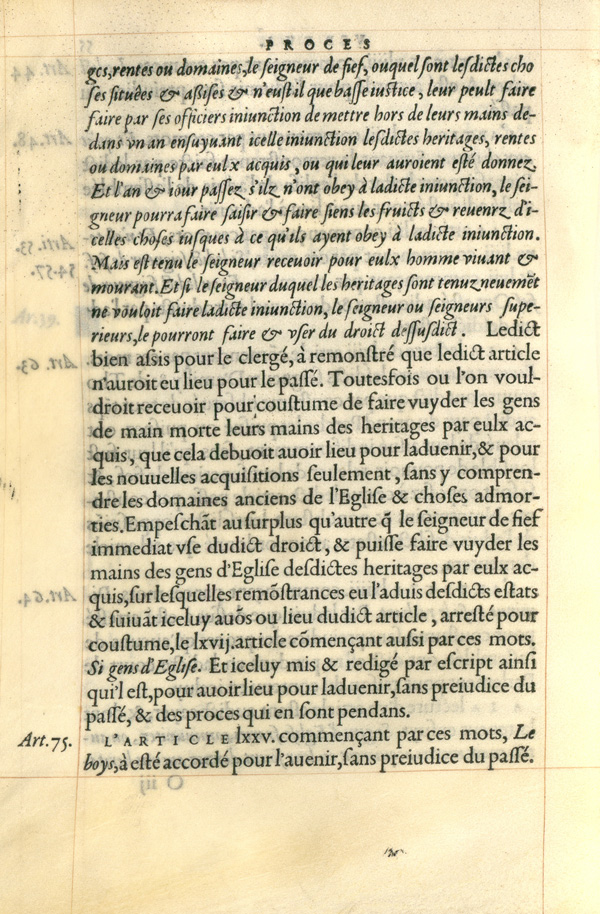 PROCES
ges,rentes ou domaines,le ſeigneur de fief, ouquel ſont leſdictes cho
ſes ſituées & aßiſes & n'euſt il que baſſe iuſtice, leur peult faire
faire par ſes officiers iniunction de mettre hors de leurs mains de-
dans vn an enſuyuant icelle iniunction leſdictes heritages, rentes
ou domaines par eulx acquis, ou qui leur auroient eſté donnez.
Et l'an & iour paſſez s'ilz n'ont obey à ladicte iniunction, le ſei-
gneur pourra faire ſaiſir & faire ſiens les fruicts & reuenrz d'i-
celles choſes iuſques à ce qu'ils ayent obey à ladicte iniunction.
Mais eſt tenu le ſeigneur receuoir pour eulx homme viuant &
mourant. Et ſi le ſeigneur duquel les heritages ſont tenuz neuemẽt
ne vouloit faire ladicte iniunction, le ſeigneur ou ſeigneurs ſupe-
rieurs,le pourront faire & vſer du droict deſſuſdict. Ledict
bien aſsis pour le clergé, à remonſtré que ledict article
n'auroit eu lieu pour le paſſé. Toutesfois ou l'on voul-
droit receuoir pour couſtume de faire vuyder les gens
de main morte leurs mains des heritages par eulx ac-
quis, que cela debuoit auoir lieu pour laduenir,& pour
les nouuelles acquiſitions ſeulement, ſans y compren-
dre les domaines anciens de l'Egliſe & choſes admor-
ties. Empeſchãt au ſurplus qu'autre q̃ le ſeigneur de fief
immediat vſe dudict droict, & puiſſe faire vuyder les
mains des gens d'Egliſe deſdictes heritages par eulx ac-
quis,ſur leſquelles remõſtrances eu l'aduis deſdicts eſtats
& ſuiuãt iceluy auõs ou lieu dudict article, arreſté pour
couſtume,le lxvij.article cõmençant auſsi par ces mots.
Si gens d'Egliſe. Et iceluy mis & redigé par eſcript ainſi
qu'il eſt,pour auoir lieu pour laduenir,ſans preiudice du
paſſé, & des proces qui en ſont pendans.
Art. 75. L'ARTICLE lxxv. commençant par ces mots, Le
boys,à eſté accordé pour l'auenir,ſans preiudice du paſſé.